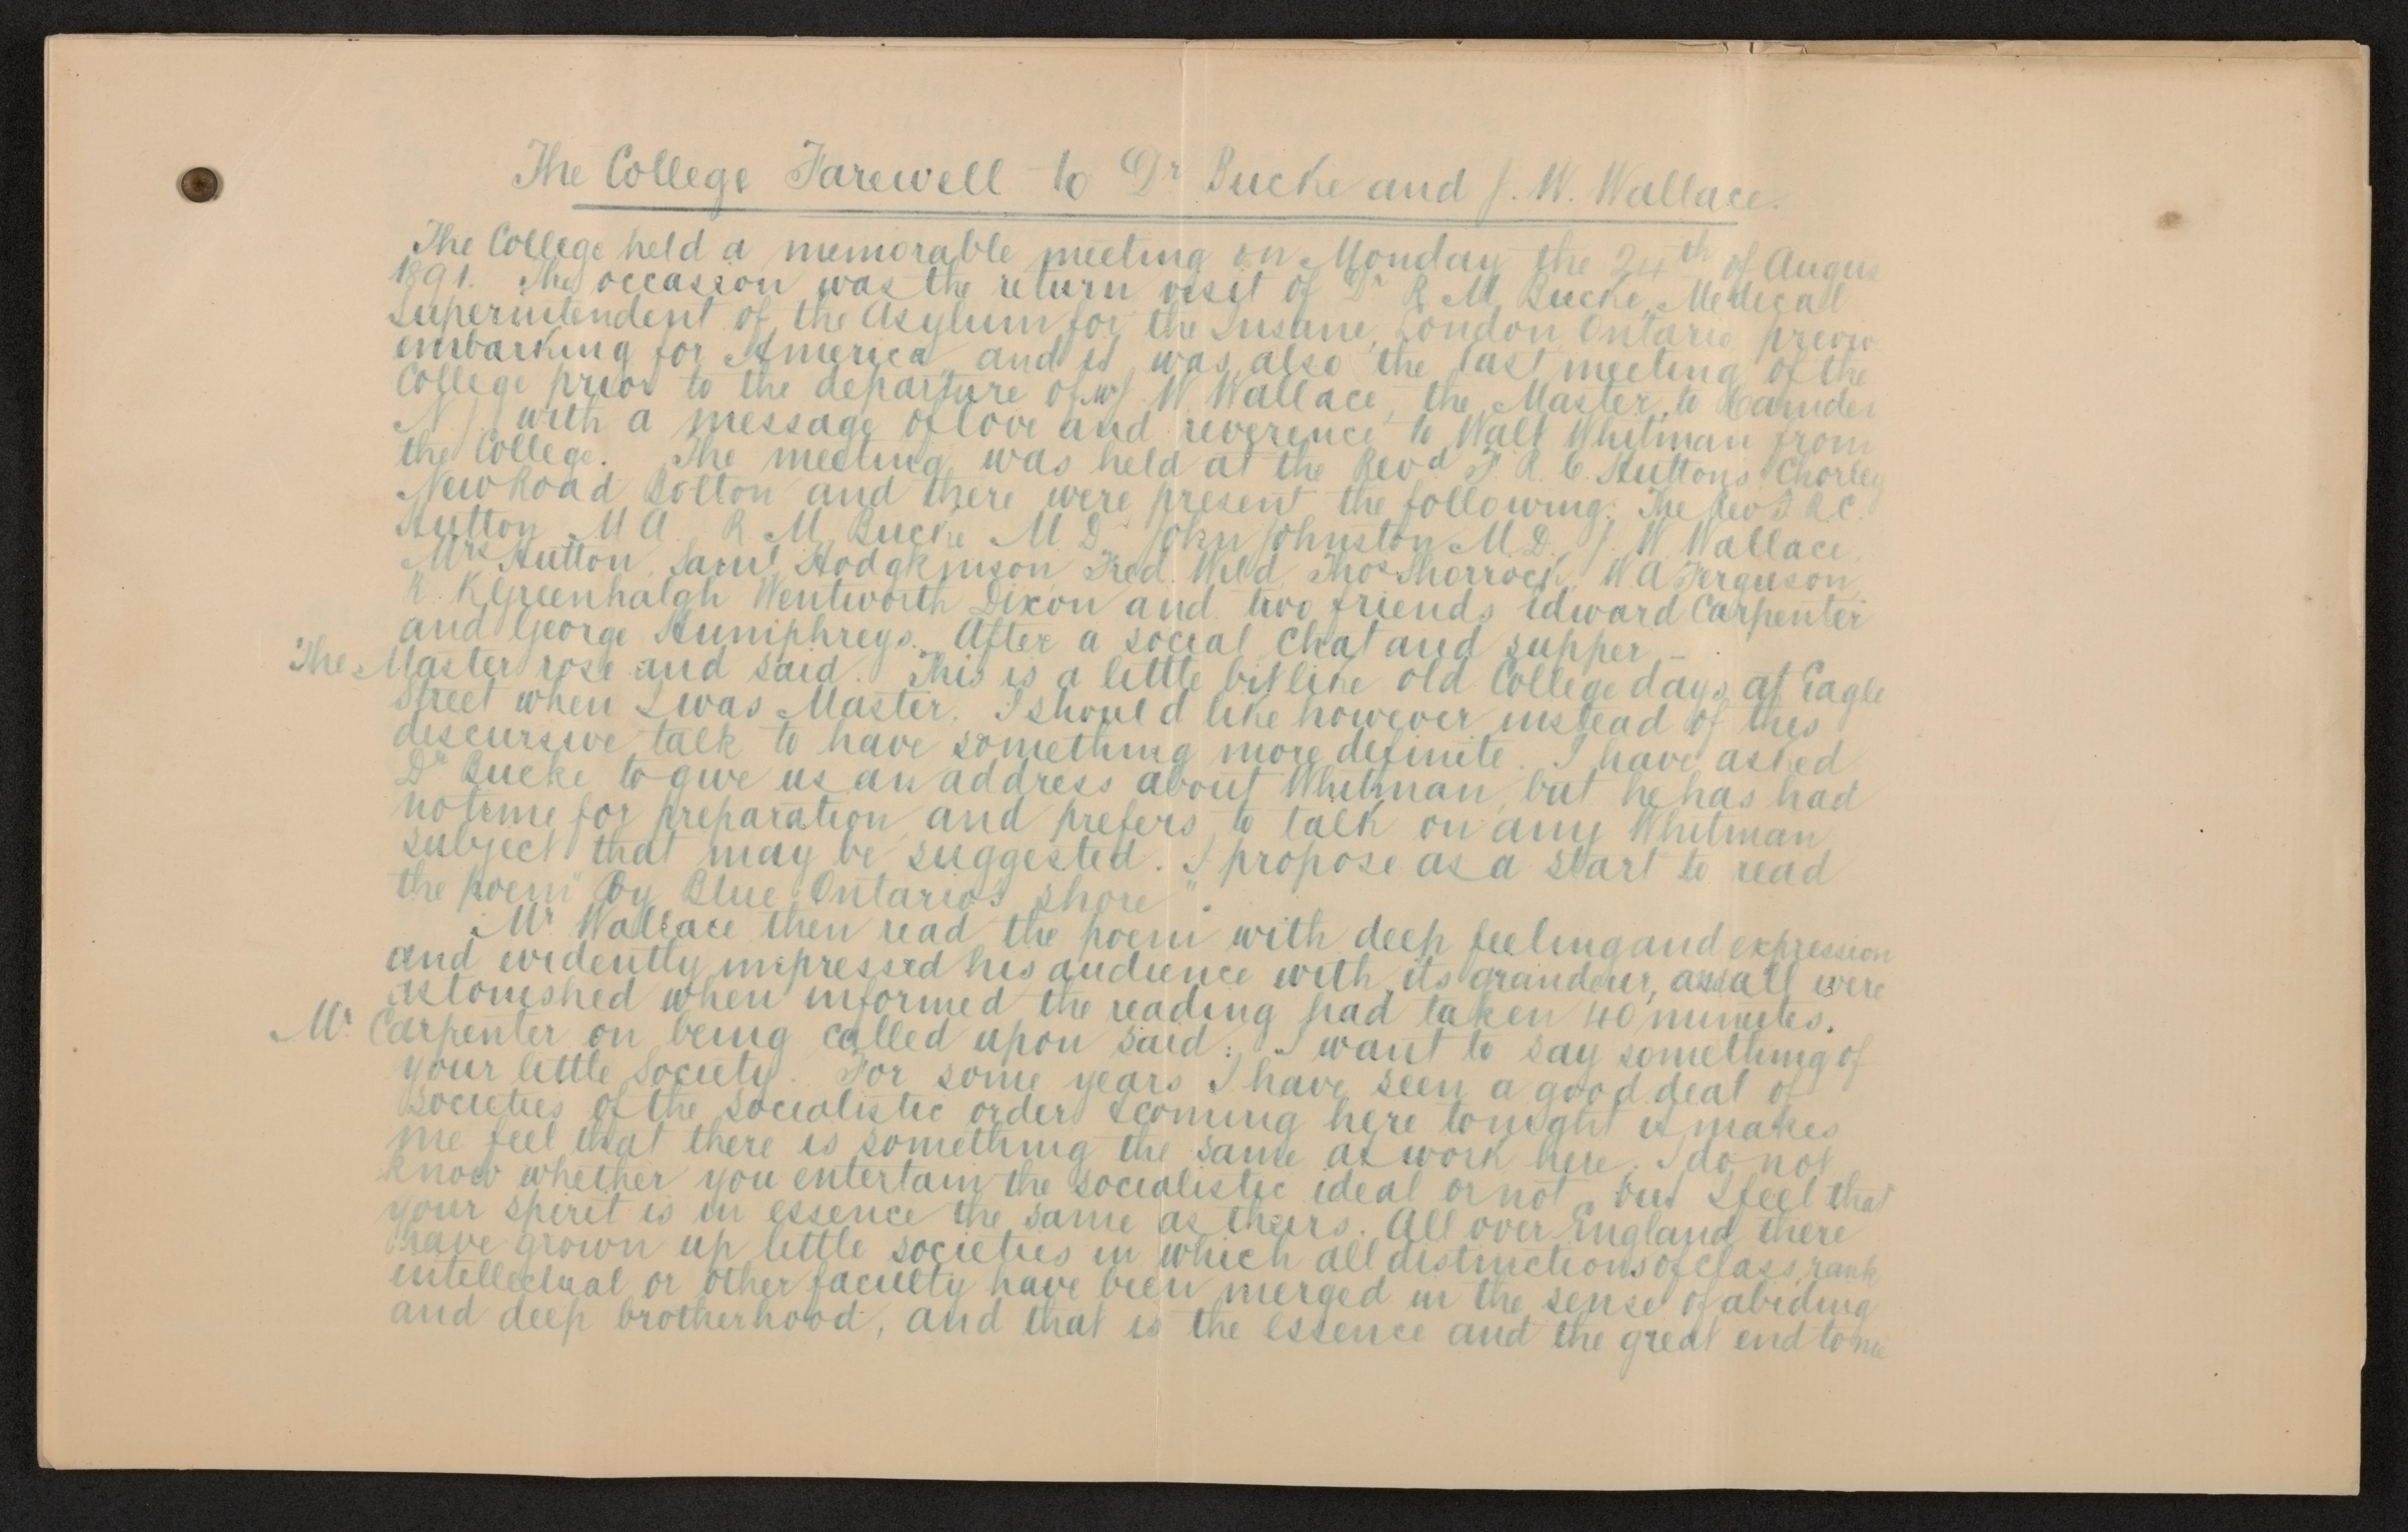 The College Farewell to Dr Bucke and J. W. Wallace.
The College held a memorable meeting on Monday the 24th of Augus
1891. The occasion was the return visit of Dr R. M. Bucke, Medical
Superintendent of the Asylum for the Insane, London Ontario previo
embarking for America and it was also the last meeting of the
College prior to the departure of J. W. Wallace, the Master, to Camden
N. J. with a message of love and reverence to Walt Whitman from
the College. The meeting was held at the Revd F. R. C. Huttons Chorley
New Road Bolton and there were present the following: The Rev F. R. C.
Hutton M. A. R. M. Bucke M. D. John Johnston M. D. J. W. Wallace.
Mrs Hutton, Saml Hodgkinson, Fred. Wild, Thos Shorrock, W. A Ferguson,
R. K Greenhalgh Wentworth Dixon and two friends Edward Carpenter
and George Humphreys. After a social chat and supper –
The Master rose and said. This is a little bit like old College days at Eagle
Street when I was Master. I should like however instead of this
discursive talk to have something more definite. I have asked
Dr Bucke to give us an address about Whitman, but he has had
no time for preparation and prefers to talk on any Whitman
subject that may be suggested. I propose as a start to read
the poem "By Blue Ontario's shore".
Mr Wallace then read the poem with deep feeling and expression
and evidently impressed his audience with its grandeur, as all were
astonished when informed the reading had taken 40 minutes.
Mr Carpenter on being called upon said: I want to say something of
your little Society. For some years I have seen a good deal of
Societies of the Socialistic order & coming here tonight it makes
me feel that there is something the same at work here. I do not
know whether you entertain the socialistic ideal or not, but I feel that
your spirit is in essence the same as theirs. All over England there
have grown up little societies in which all distinctions of class, rank
intellectual or other faculty have been merged in the sense of abiding
and deep brotherhood, and that is the essence and the great end to me